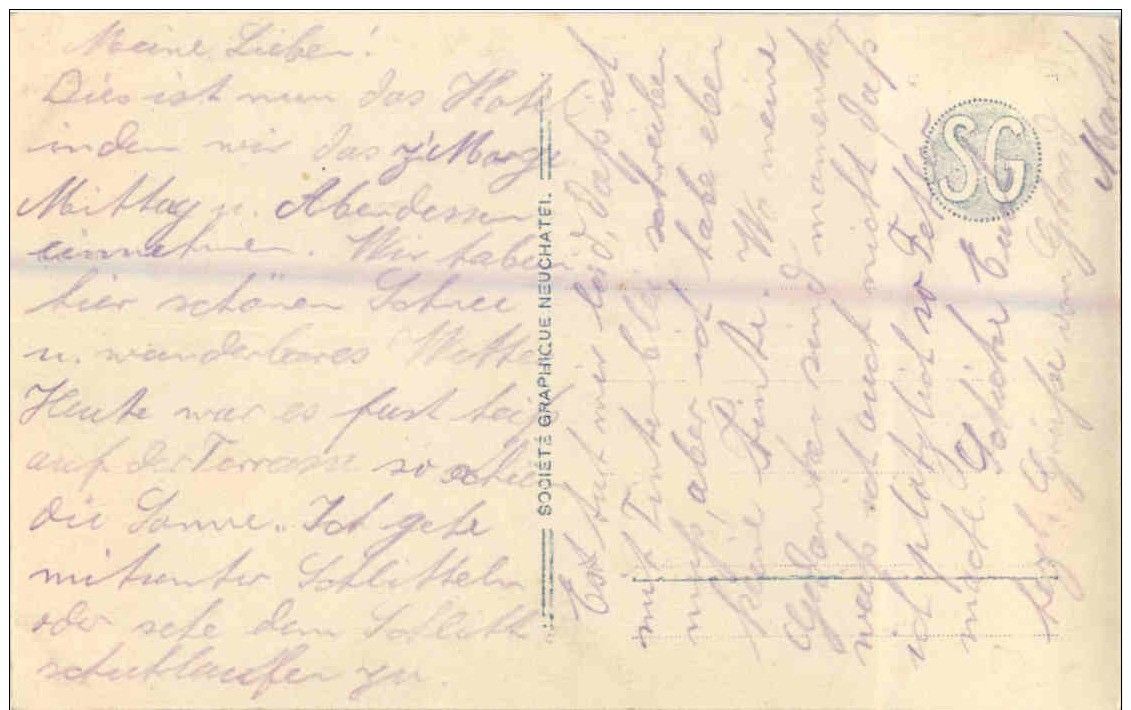 Meine Lieben!
Dies ist nun das Hotel
indem wir das z'Morge
Mittag u. Abendessen
einnehmen. Wir haben
hier schönen Schnee
u. wunderbares Wetter
Heute war es fast heiß
auf der Terrasse so schien
die Sonne. Ich gehe
mitunter Schlitteln
oder sehe dem Schlitt
schuhlaufen zu.
SOCIÉTÉ GRAPHIQUE NEUCHATEL.
SG
Es tut mir leid, daß ich
mit Tinteblei schreiben
muß, aber ich habe eben
keine Tinte. Wo meine
Gedanken sind momentan
weiß ich auch nicht daß
ich plötzlich so Fehler
mache. Eure
herzl. Grüße von
Martha